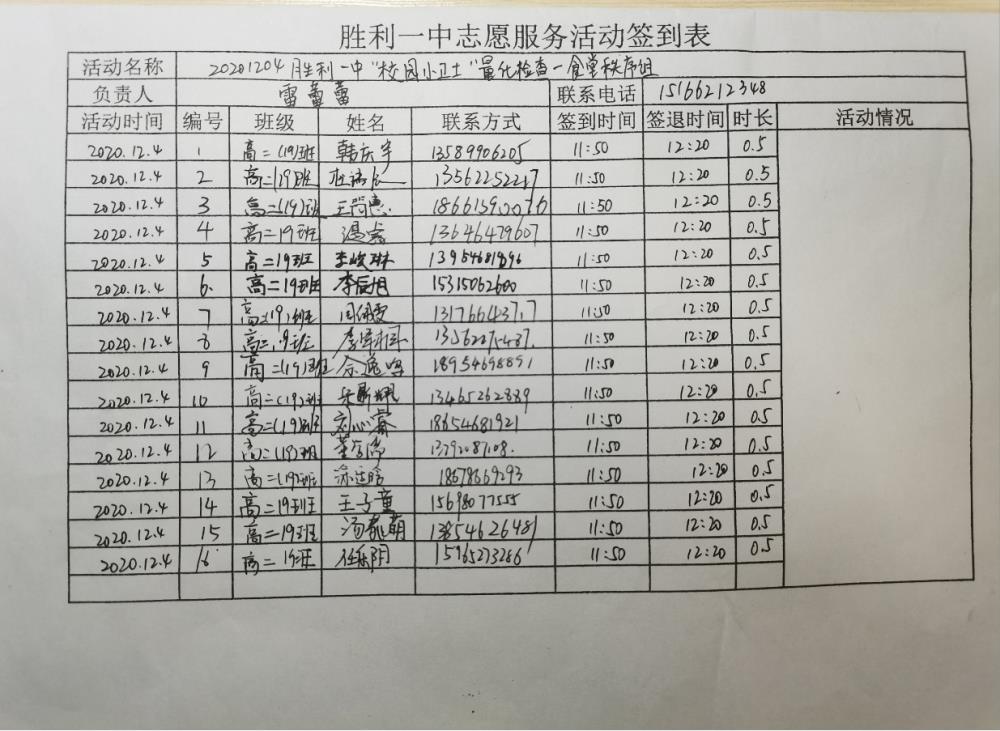 胜利一中志愿服务活动签到表
活动名称 20201204胜利一中"校园小卫士"量化检查-食堂秩序组
负责人 雷蕾蕾 联系电话 15166212348
活动时间 编号 班级 姓名 联系方式 签到时间 签退时间 时长 活动情况
2020.12.4 1 高二(19)班 韩庆宇 13589906205 11:50 12:20 0.5
2020.12.4 2 高二(19)班 13562252217 11:50 12:20 0.5
2020.12.4 3 高二(19)班 王尚惠 11:50 12:20 0.5
2020.12.4 4 高二19班 13646479607 11:50 12:20 0.5
2020.12.4 5 高二19班 李峻琳 11:50 12:20 0.5
2020.12.4 6. 高二19班 李辰旭 15315062600 11:50 12:20 0.5
2020.12.4 7 高二(19)班 周佩雯 11:50 12:20 0.5
2020.12.4 8 高二19班 11:50 12:20 0.5
2020.12.4 9 高二(19)班 18954698891 11:50 12:20 0.5
2020.12.4 10 高二(19)班 13465262889 11:50 12:20 0.5
2020.12.4 11 高二(19)班 18654681921 11:50 12:20 0.5
2020.12.4 12 高二(19)班 13792087108. 11:50 12:20 0.5
2020.12.4 13 高二(19)班 18678669293 11:50 12:20 0.5
2020.12.4 14 高二19班 王子童 15698077555 11:50 12:20 0.5
2020.12.4 15 高二19班 13854626481 11:50 12:20 0.5
2020.12.4 16 高二19班 任乐阴 15965273286 11:50 12:20 0.5